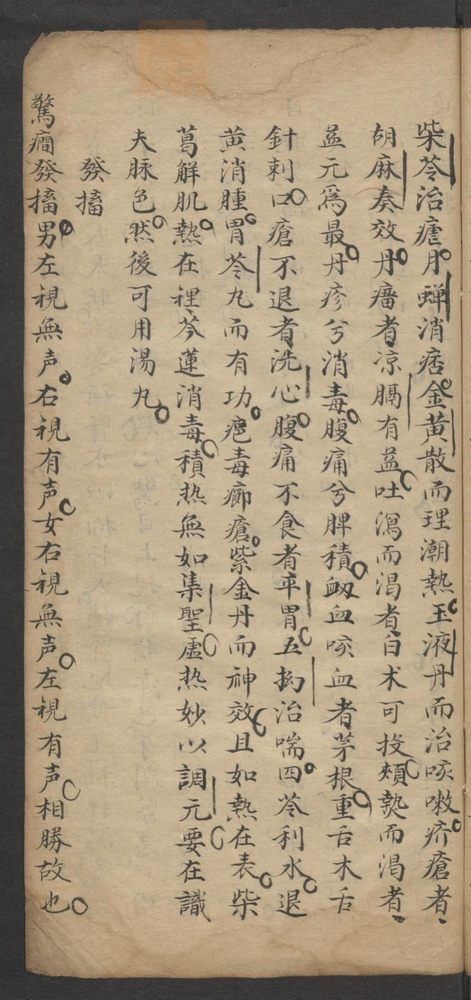 柴苓治瘧月蟬消痞金黃散而理潮熱玉液丹而治咳嗽疥瘡者
胡麻奏效丹瘤者凉膈有益吐瀉而渴者白术可投頰熱而渴者
益元爲最丹疹兮消毒腹痛兮脾積衂血咳血者茅根重舌木舌
針刺口瘡不退者洗心腹痛不食者平胃五拗治喘四苓利水退
黃消腫胃苓丸而有功瘡毒癤瘡紫金丹而神效且如熱在表柴
葛解肌熱在裡芩連消毒積热無如集聖虛热妙以調元要在識
夫脉色然後可用湯丸
發搐
驚癇發搐男左視無声右視有声女右視無声左視有声相勝故也